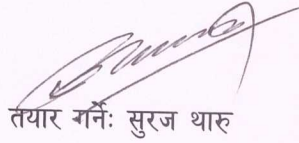 तयार गर्नेः सुरज थारु